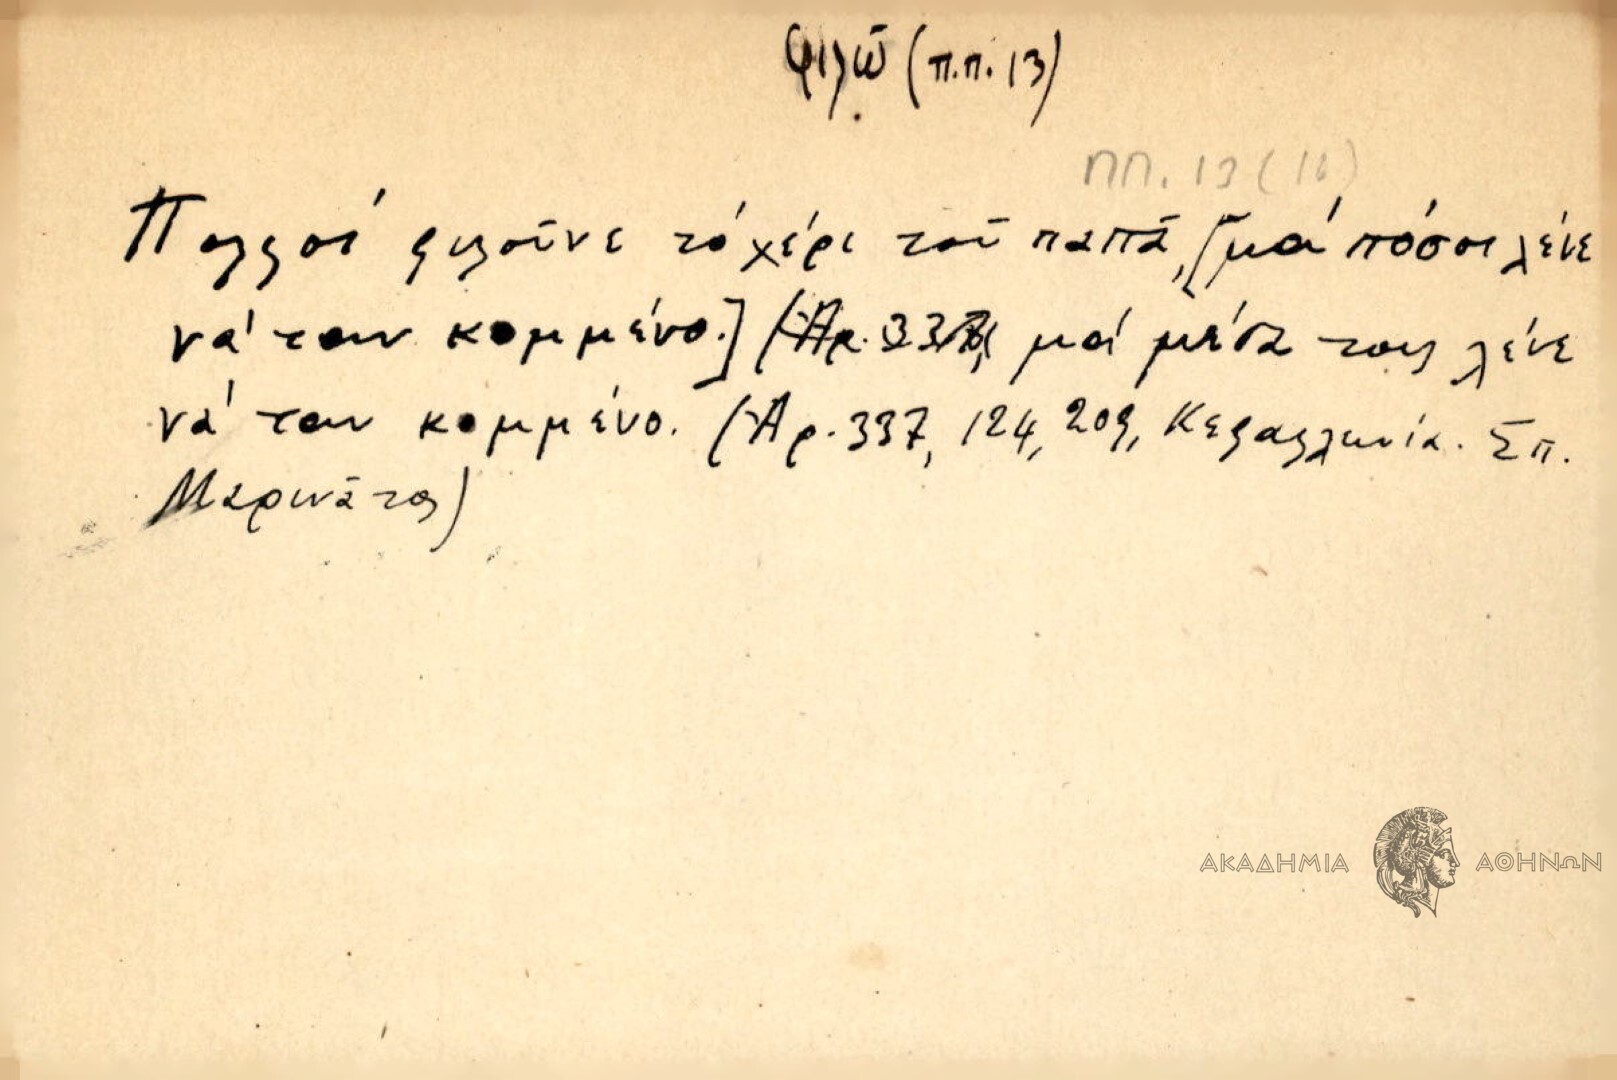 φιλῶ (π.π. 13)
ΠΠ. 13 (16)
Πολλοί φιλοῦνε τό χέρι τοῦ παπᾶ, [μά πόσοι λένε
νά ταν κομμένο.] (Ἀρ. 337, μά μέσα τους λένε
νά ταν κομμένο. (Ἀρ. 337, 124, 209, Κεφαλλωνία. Σπ.
Μαρινᾶτος)
ΑΚΑΔΗΜΙΑ ΑΘΗΝΩΝ